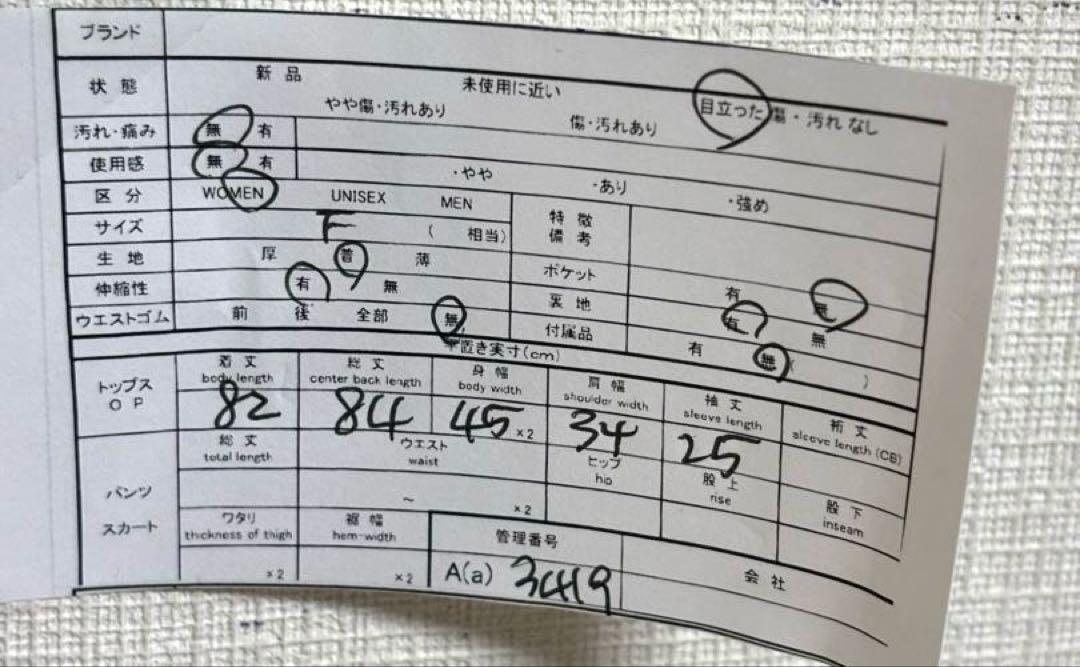 ブランド
状態 新品 未使用に近い 目立った傷・汚れなし
やや傷・汚れあり 傷・汚れあり
汚れ・痛み 無 有
使用感 無 有 ・やや ・あり ・強め
区分 WOMEN UNISEX MEN 特徴備考
サイズ F ( 相当)
生地 厚 普 薄 ポケット 有 無
伸縮性 有 無 裏地 有 無
ウエストゴム 前 後 全部 無 付属品 有 無 ( )
平置き実寸(cm)
トップス OP 着丈 総丈 身幅 肩幅 袖丈 裄丈
body length center back length body width shoulder width sleeve length sleeve length (CB)
82 84 45 ×2 34 25
パンツ スカート 総丈 ウエスト ヒップ 股上 股下
total length waist hip rise inseam
~ ×2
ワタリ 裾幅 管理番号 会社
thickness of thigh hem-width
×2 ×2 A(a) 3419